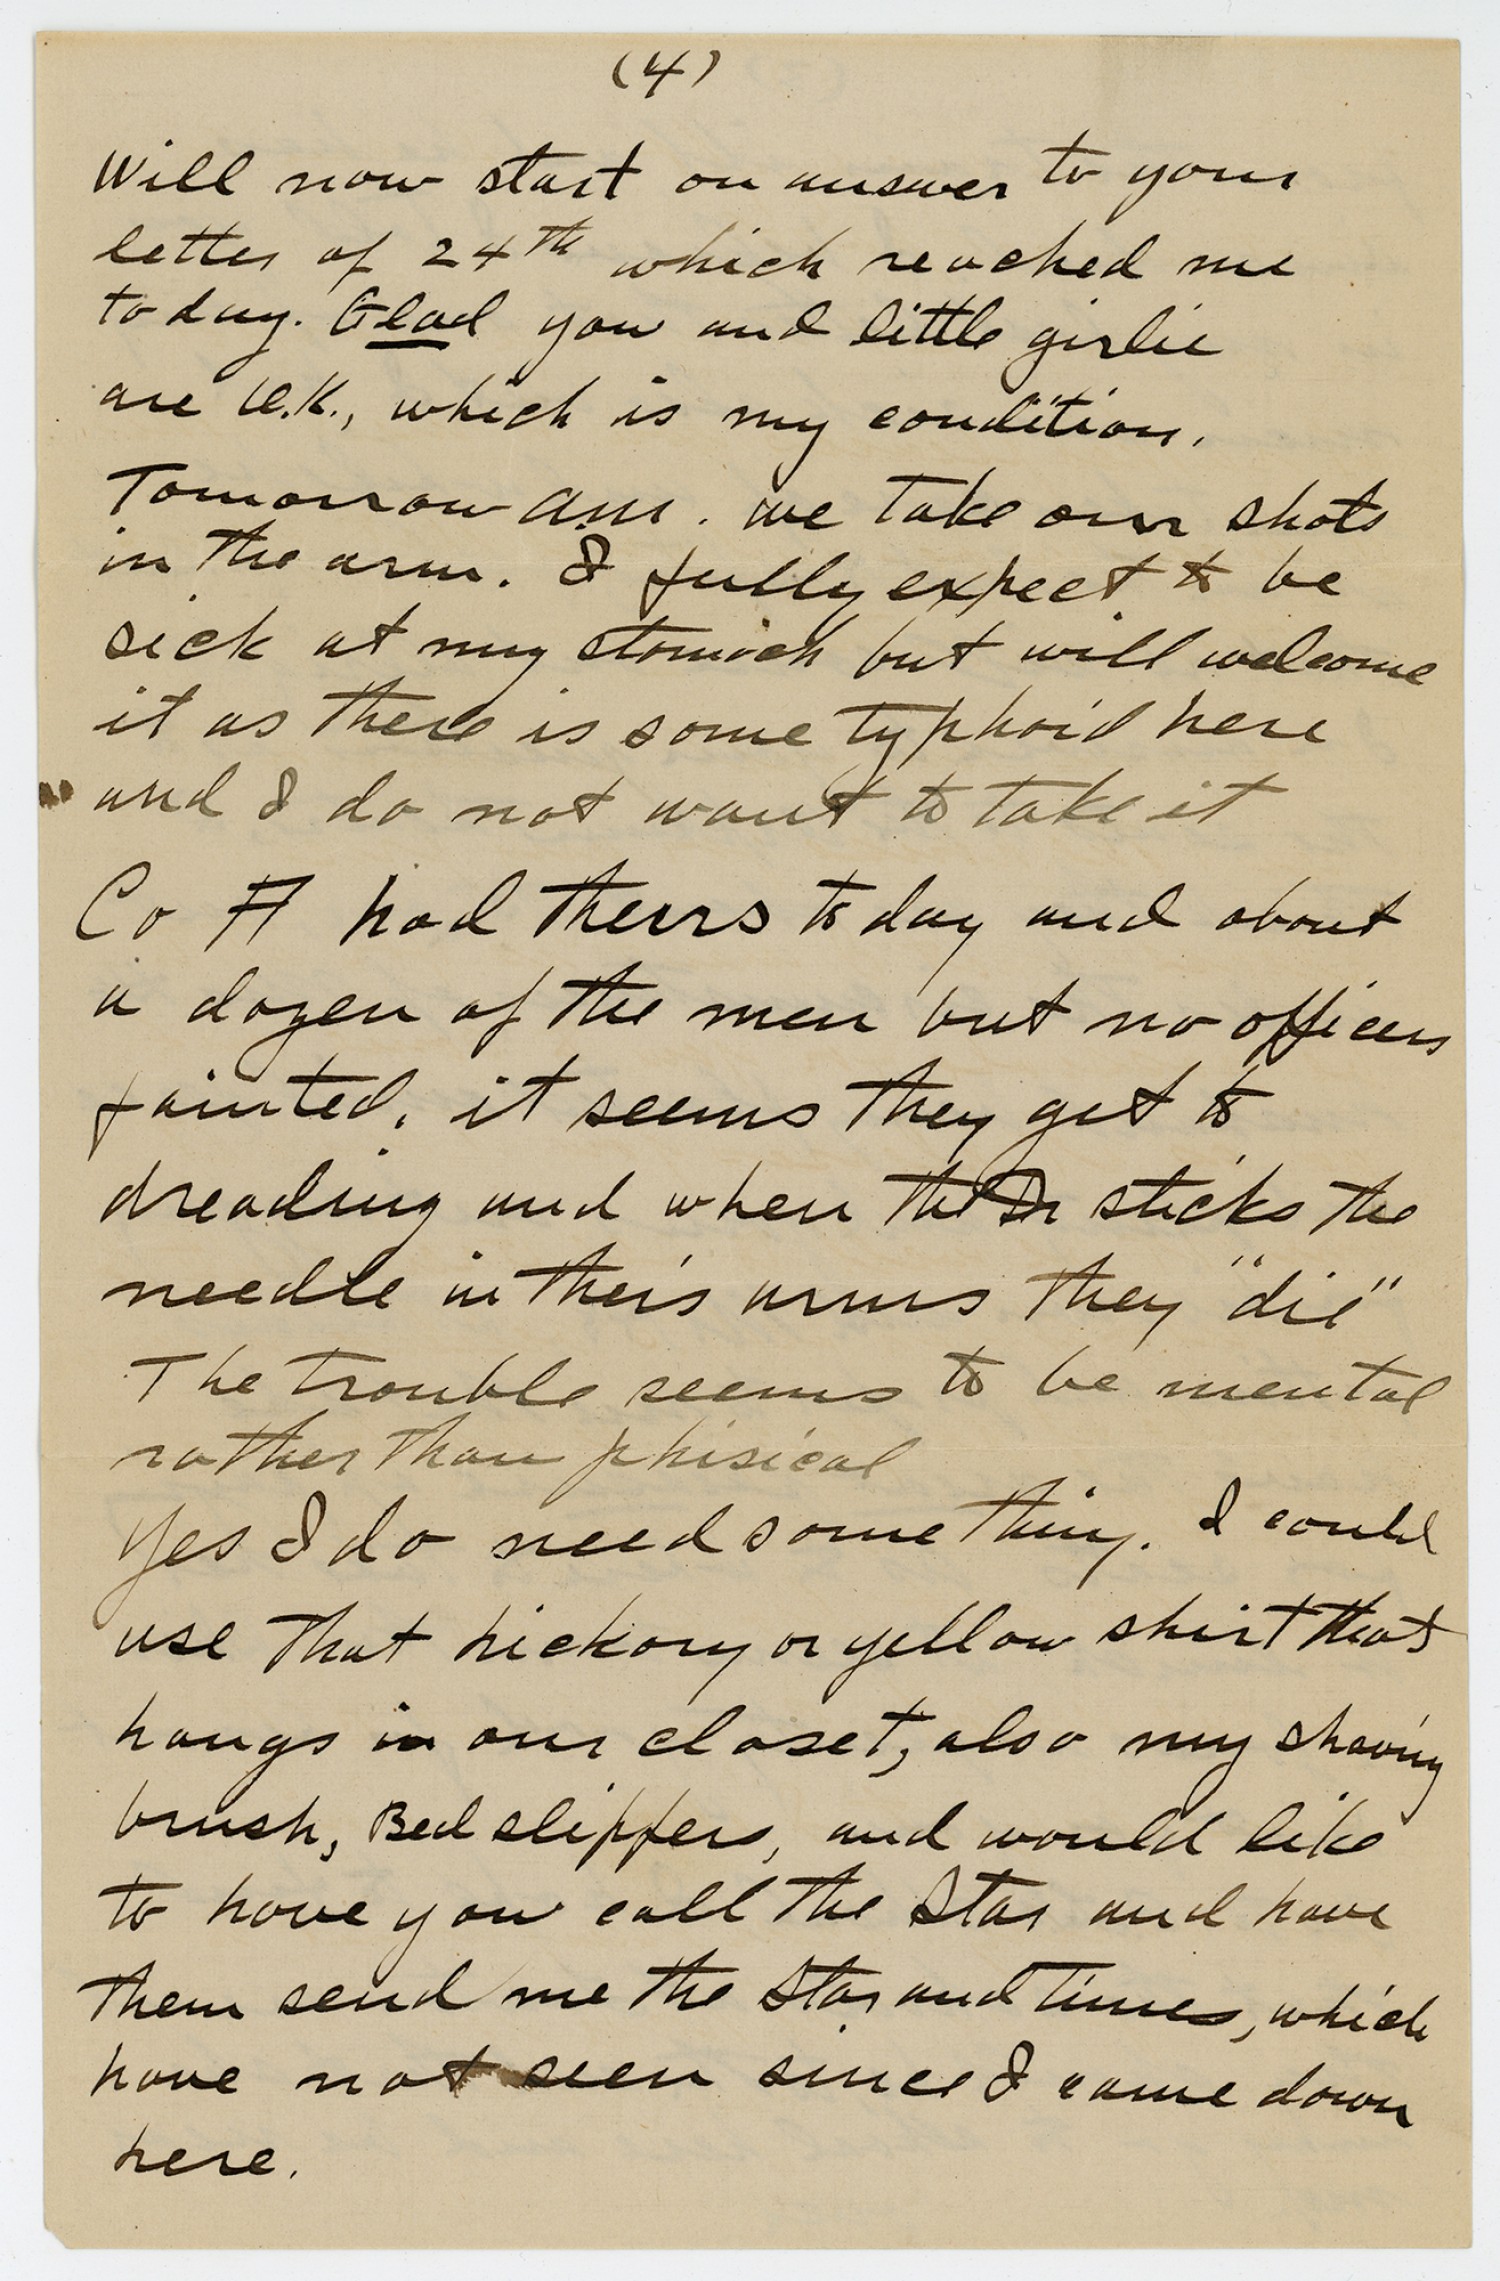 (4)
Will now start on answer to your
letter of 24th which reached me
today. Glad you and little girlie
are O.K., which is my condition.
Tomorrow am. we take our shots
in the arm. I fully expect to be
sick at my stomach but will welcome
it as there is some typhoid here
and I do not want to take it
Co had theirs today and about
a dozen of the men but no officers
fainted. it seems they get to
dreading and when the Dr sticks the
needle in their arms they "die"
The trouble seems to be mental
rather than phisical
Yes I do need something. I could
use that hickory or yellow shirt that
hangs in our closet, also my shaving
brush, Bed slippers, and would like
to have you call the Star and have
them send me the Star and Times, which
have not seen since I came down
here.